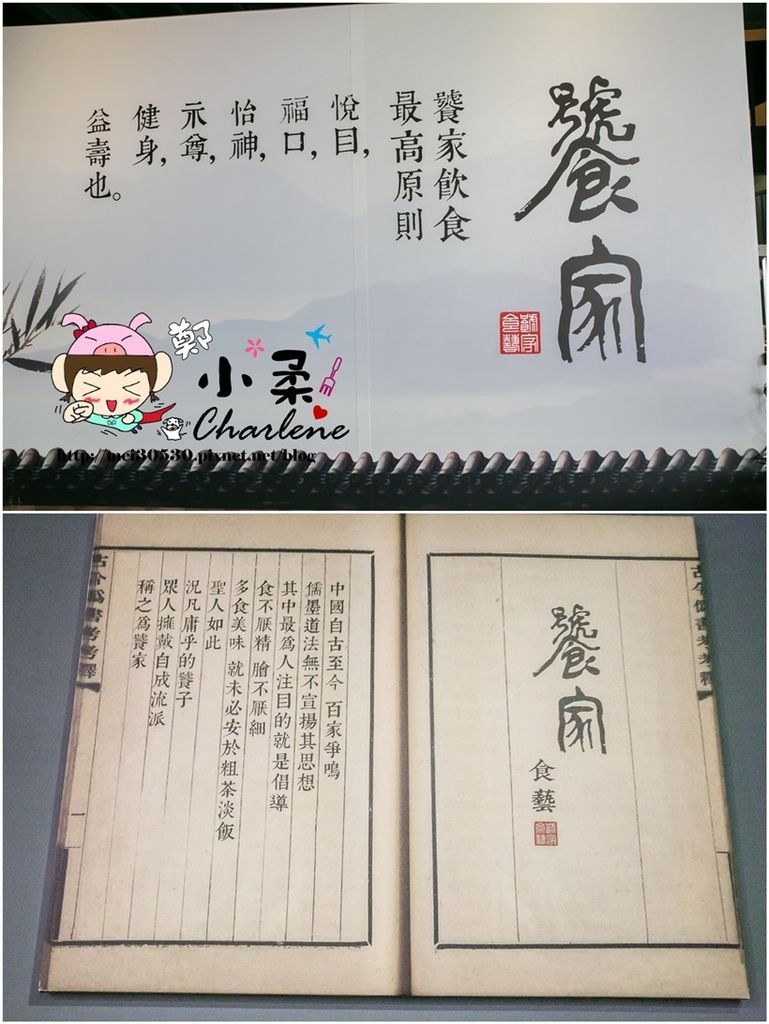 饕家
饕家食藝
饕家飲食
最高原則
悅目，
福口，
怡神，
示尊，
健身，
益壽也。
鄭
小柔
Charlene
http://mei30530.pixnet.net/blog
饕家
食藝
饕家食藝
中國自古至今 百家爭鳴
儒墨道法無不宣揚其思想
其中最為人注目的就是倡導
食不厭精 膾不厭細
多食美味 就未必安於粗茶淡飯
聖人如此
況凡庸乎的饕子
眾人擁戴自成流派
稱之為饕家
古今偽書考考釋
一